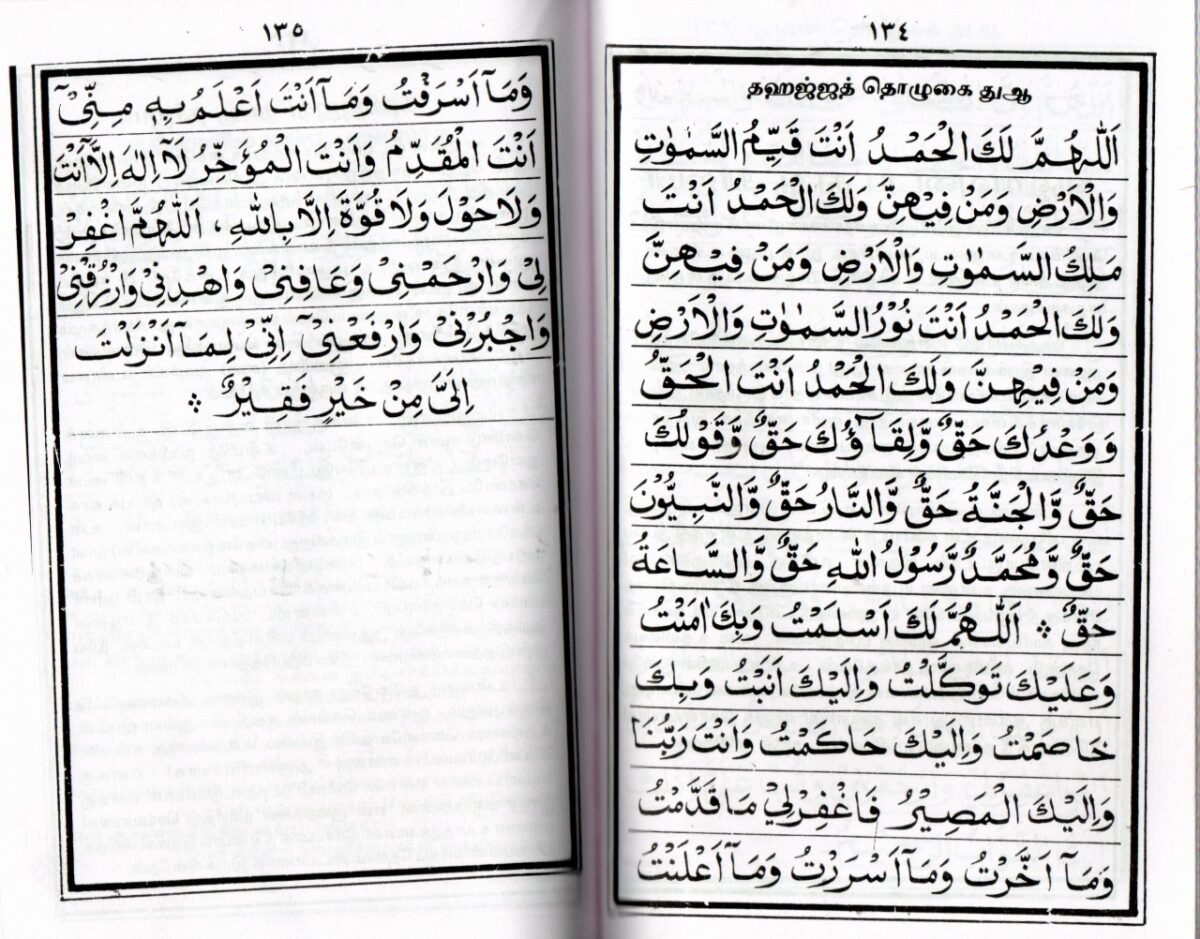 ١٣٤
தஹஜ்ஜத் தொழுகை துஆ
اَللّٰهُمَّ لَكَ الْحَمْدُ اَنْتَ قَيِّمُ السَّمٰوٰتِ
وَالْاَرْضِ وَمَنْ فِيْهِنَّ وَلَكَ الْحَمْدُ اَنْتَ
مَلِكُ السَّمٰوٰتِ وَالْاَرْضِ وَمَنْ فِيْهِنَّ
وَلَكَ الْحَمْدُ اَنْتَ نُوْرُ السَّمٰوٰتِ وَالْاَرْضِ
وَمَنْ فِيْهِنَّ وَلَكَ الْحَمْدُ اَنْتَ الْحَقُّ
وَوَعْدُكَ حَقٌّ وَّلِقَآؤُكَ حَقٌّ وَّقَوْلُكَ
حَقٌّ وَّالْجَنَّةُ حَقٌّ وَّالنَّارُ حَقٌّ وَّالنَّبِيُّوْنَ
حَقٌّ وَّمُحَمَّدٌ رَّسُوْلُ اللّٰهِ حَقٌّ وَّالسَّاعَةُ
حَقٌّ ۞ اَللّٰهُمَّ لَكَ اَسْلَمْتُ وَبِكَ اٰمَنْتُ
وَعَلَيْكَ تَوَكَّلْتُ وَاِلَيْكَ اَنَبْتُ وَبِكَ
خَاصَمْتُ وَاِلَيْكَ حَاكَمْتُ وَاَنْتَ رَبُّنَا
وَاِلَيْكَ الْمَصِيْرُ فَاغْفِرْلِيْ مَا قَدَّمْتُ
وَمَآ اَخَّرْتُ وَمَآ اَسْرَرْتُ وَمَآ اَعْلَنْتُ
١٣٥
وَمَآ اَسْرَفْتُ وَمَآ اَنْتَ اَعْلَمُ بِهٖ مِنِّيْٓ
اَنْتَ الْمُقَدِّمُ وَاَنْتَ الْمُؤَخِّرُ لَآ اِلٰهَ اِلَّآ اَنْتَ
وَلَا حَوْلَ وَلَا قُوَّةَ اِلَّا بِاللّٰهِ ، اَللّٰهُمَّ اغْفِرْ
لِيْ وَارْحَمْنِيْ وَعَافِنِيْ وَاهْدِنِيْ وَارْزُقْنِيْ
وَاجْبُرْنِيْ وَارْفَعْنِيْٓ اِنِّيْ لِمَآ اَنْزَلْتَ
اِلَيَّ مِنْ خَيْرٍ فَقِيْرٌ ۞